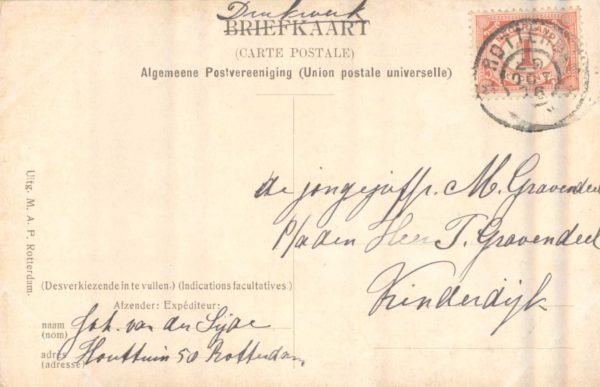 Drukwerk
BRIEFKAART
(CARTE POSTALE)
Algemeene Postvereeniging (Union postale universelle)
NEDERLAND
1
CENT
ROTTERDAM
OCT
de jongejuffr. M. Gravendeel
p/a den Heer T. Gravendeel
Kinderdijk
Uitg. M. A. P. Rotterdam.
(Desverkiezende in te vullen.) (Indications facultatives.)
Afzender: Expéditeur:
naam Joh. van der
(nom)
adres Houttuin 50 Rotterdam
(adresse)